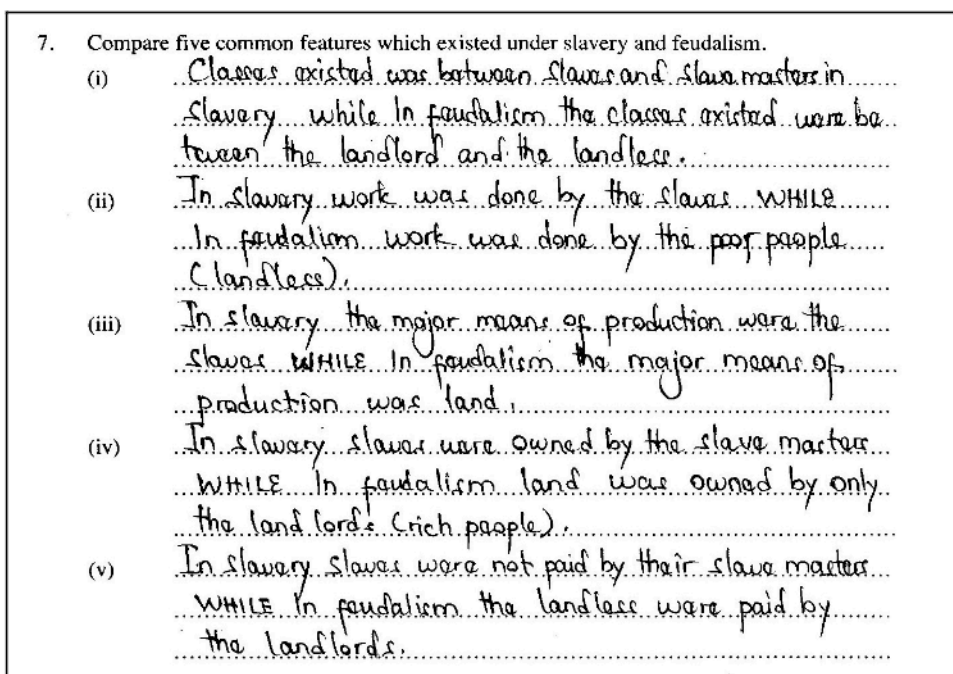 7. Compare five common features which existed under slavery and feudalism.
(i) Classes existed was between slaves and slave masters in
slavery while In feudalism the classes existed were be
tween the landlord and the landless.
(ii) In slavery work was done by the slaves WHILE
In feudalism work was done by the poor people
(landless).
(iii) In slavery the major means of production were the
slaves WHILE In feudalism the major means of
production was land.
(iv) In slavery slaves were owned by the slave masters
WHILE In feudalism land was owned by only
the land lords (rich people).
(v) In slavery slaves were not paid by their slave masters
WHILE In feudalism the landless were paid by
the landlords.